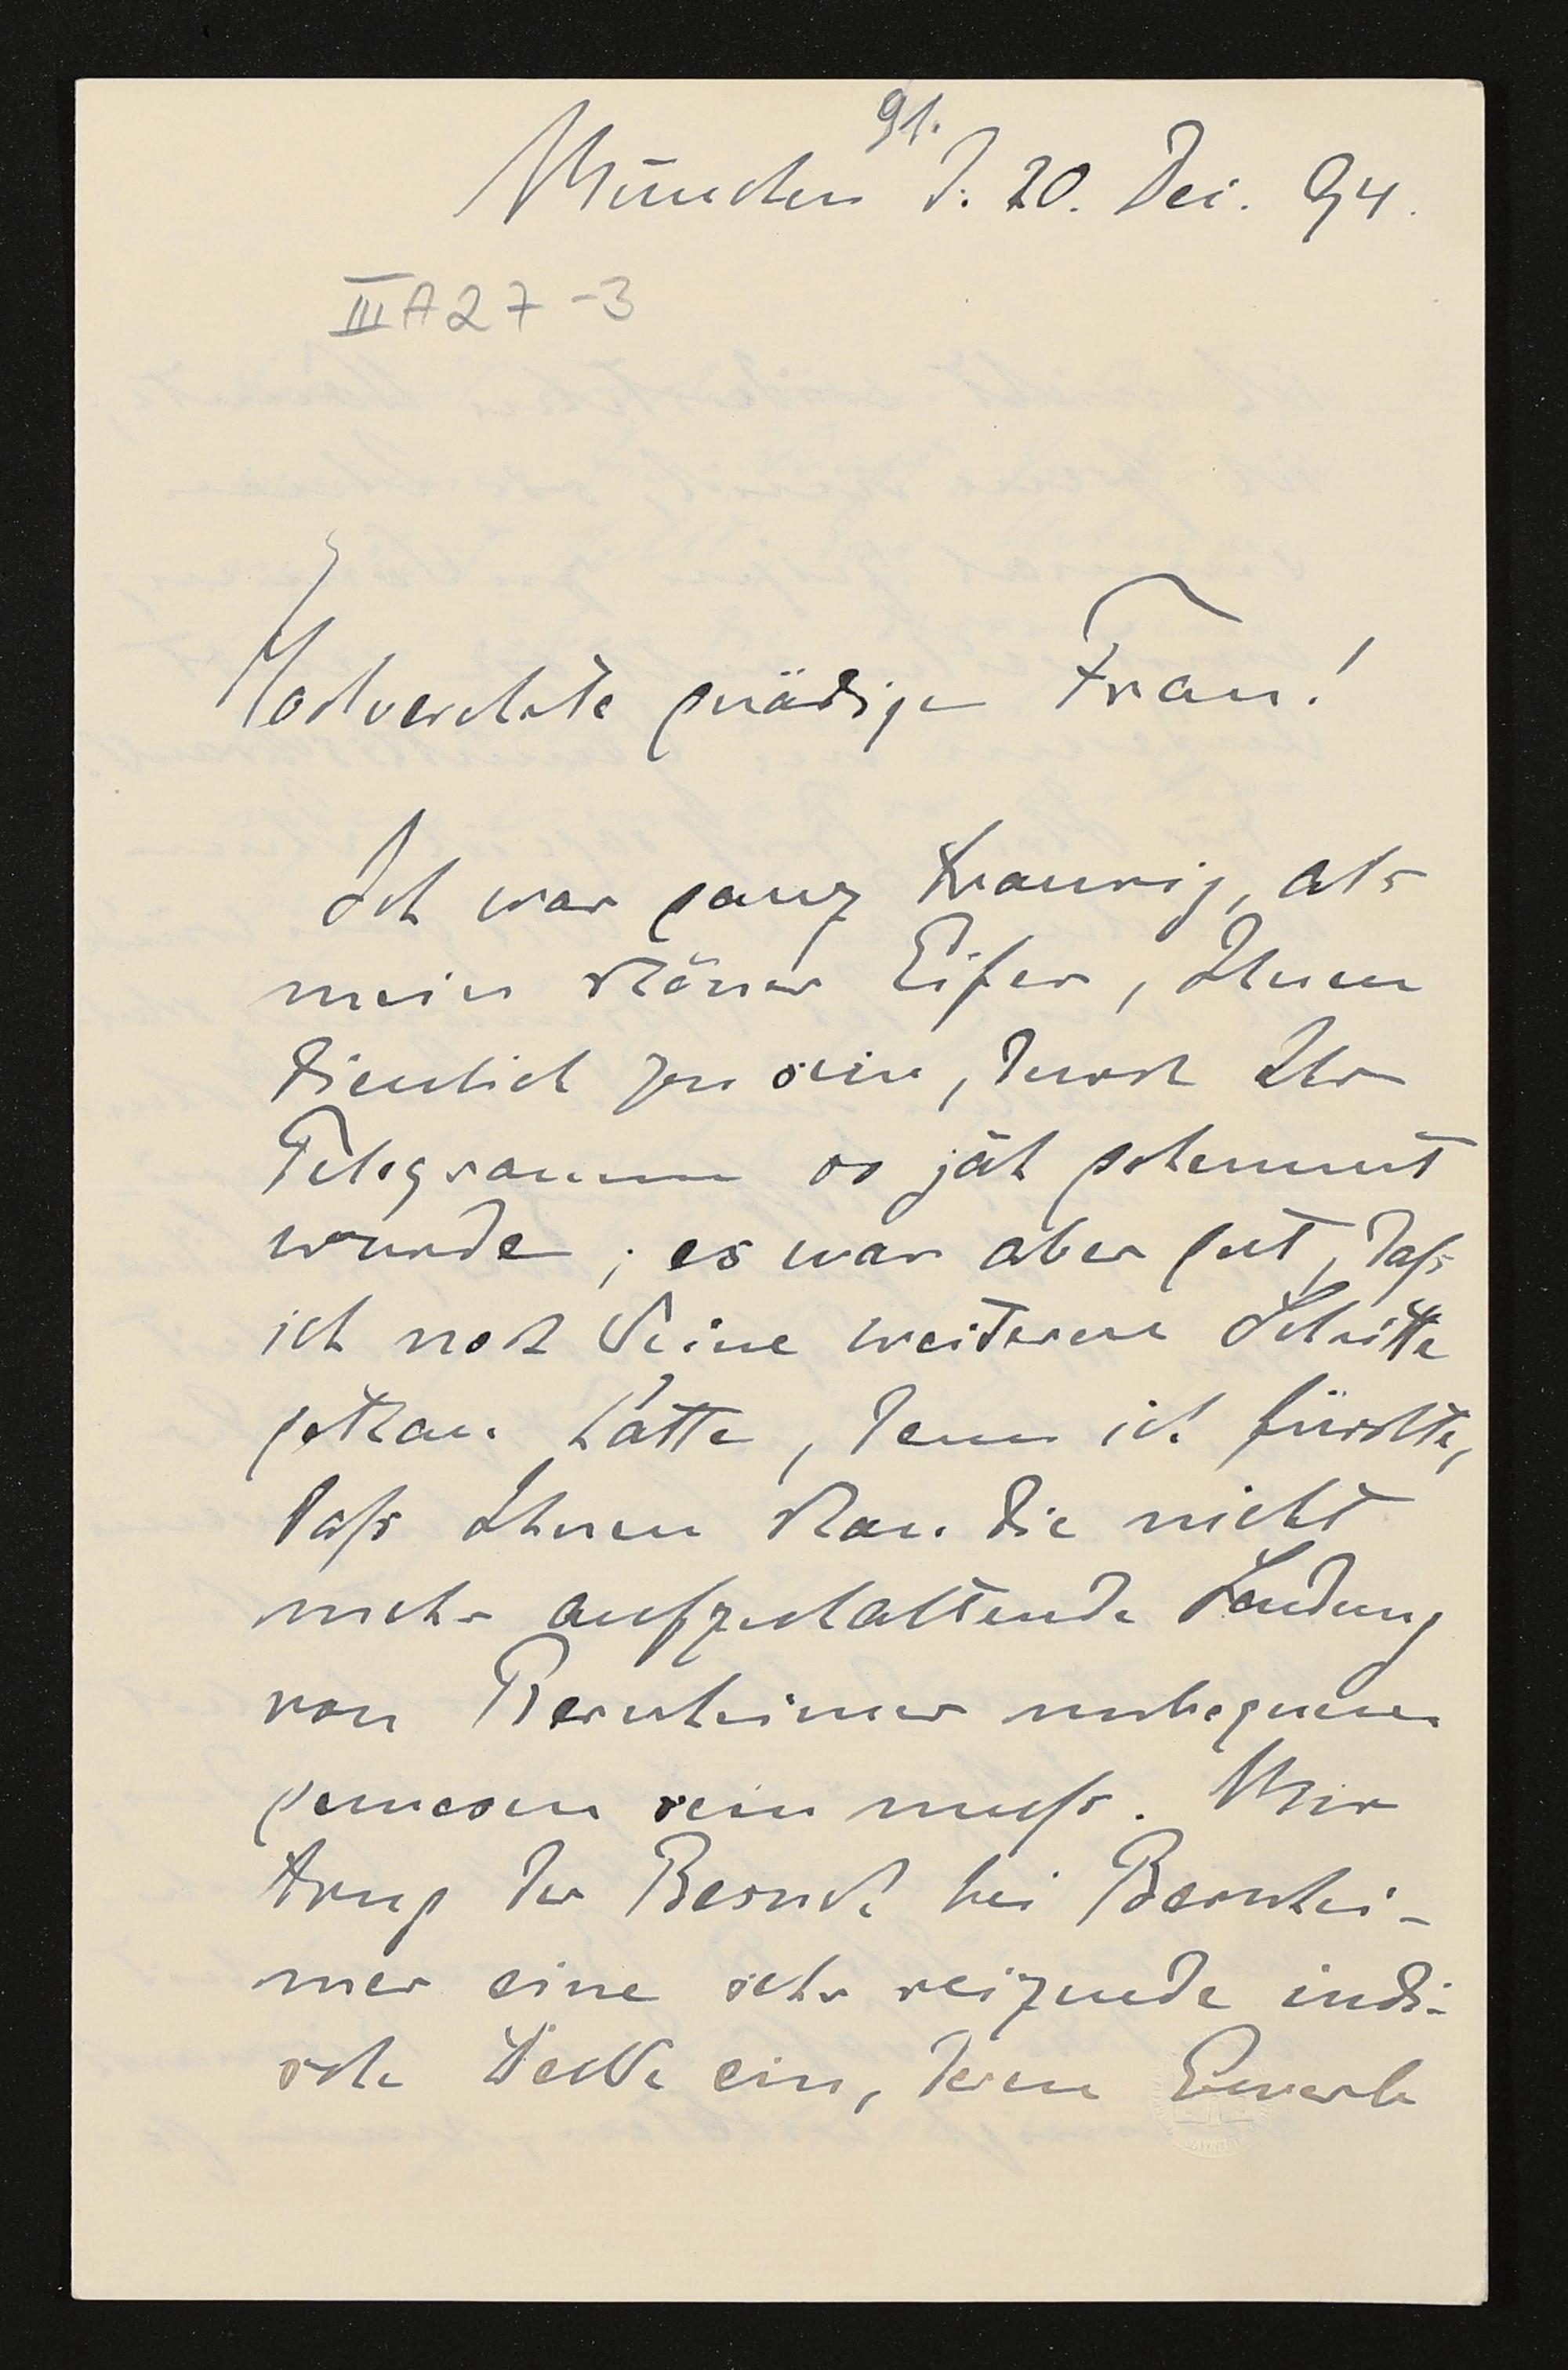 91.
München d. 20. Dec. 94.
III A 27-3
Hochverehrte gnädige Frau!
Ich war ganz traurig, als
mein schöner Eifer, Ihnen
dienlich zu sein, durch Ihr
Telegramm so jäh gehemmt
wurde; es war aber gut, daß
ich noch keine weiteren Schritte
gethan hätte, denn ich fürchte,
daß Ihnen schon die nicht
mehr aufzuhaltende Sendung
von Bernheimer unbequem
gewesen sein muß. Mir
trug der Besuch bei Bernhei-
mer eine sehr reizende indi-
sche Decke ein, deren Erwerb